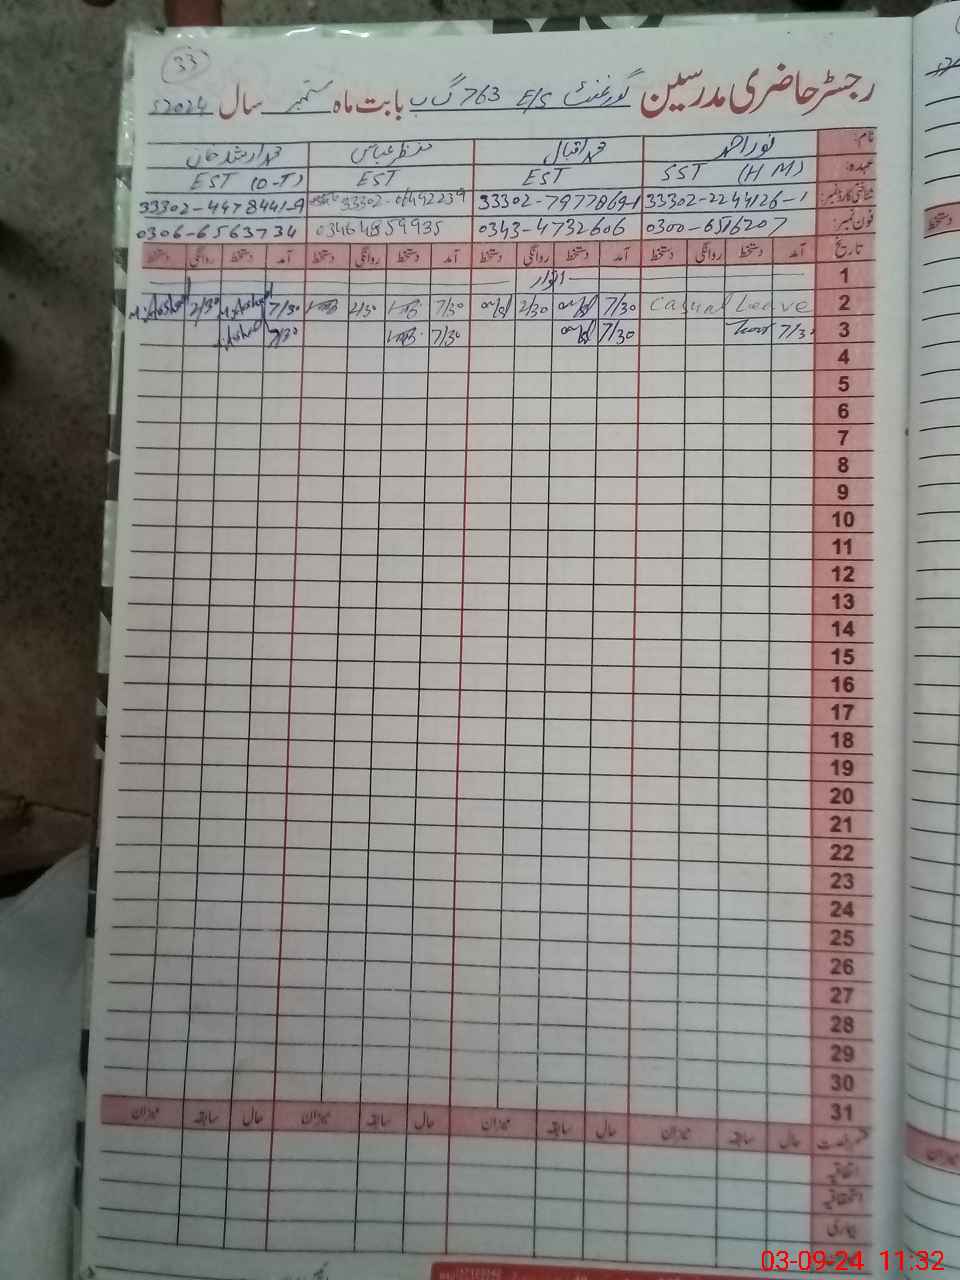 33
رجسٹر حاضری مدرسین گورنمنٹ E/S 763 گ ب بابت ماہ ستمبر سال 2024ء
نام: نور احمد محمد اقبال منظر عباس محمد ارشد خان
عہدہ: SST (H M) EST EST EST (O-T)
شناختی کارڈ نمبر: 33302-2244126-1 33302-7977869-1 33302-4478441-9
فون نمبر: 0300-6516207 0343-4732606 03464859935 0306-6563734
تاریخ آمد دستخط روانگی دستخط آمد دستخط روانگی دستخط آمد دستخط روانگی دستخط آمد دستخط روانگی دستخط
1 اتوار
2 Casual Leave 7/30 2/30 7/30 2/30 7/30 M.Arshad 2/30 M.Arshad
3 7/30 7/30 7/30 7/30
4
5
6
7
8
9
10
11
12
13
14
15
16
17
18
19
20
21
22
23
24
25
26
27
28
29
30
31
حال سابقہ میزان حال سابقہ میزان حال سابقہ میزان حال سابقہ میزان
اتفاقیہ
استحقاقیہ
بیماری
03-09-24 11:32